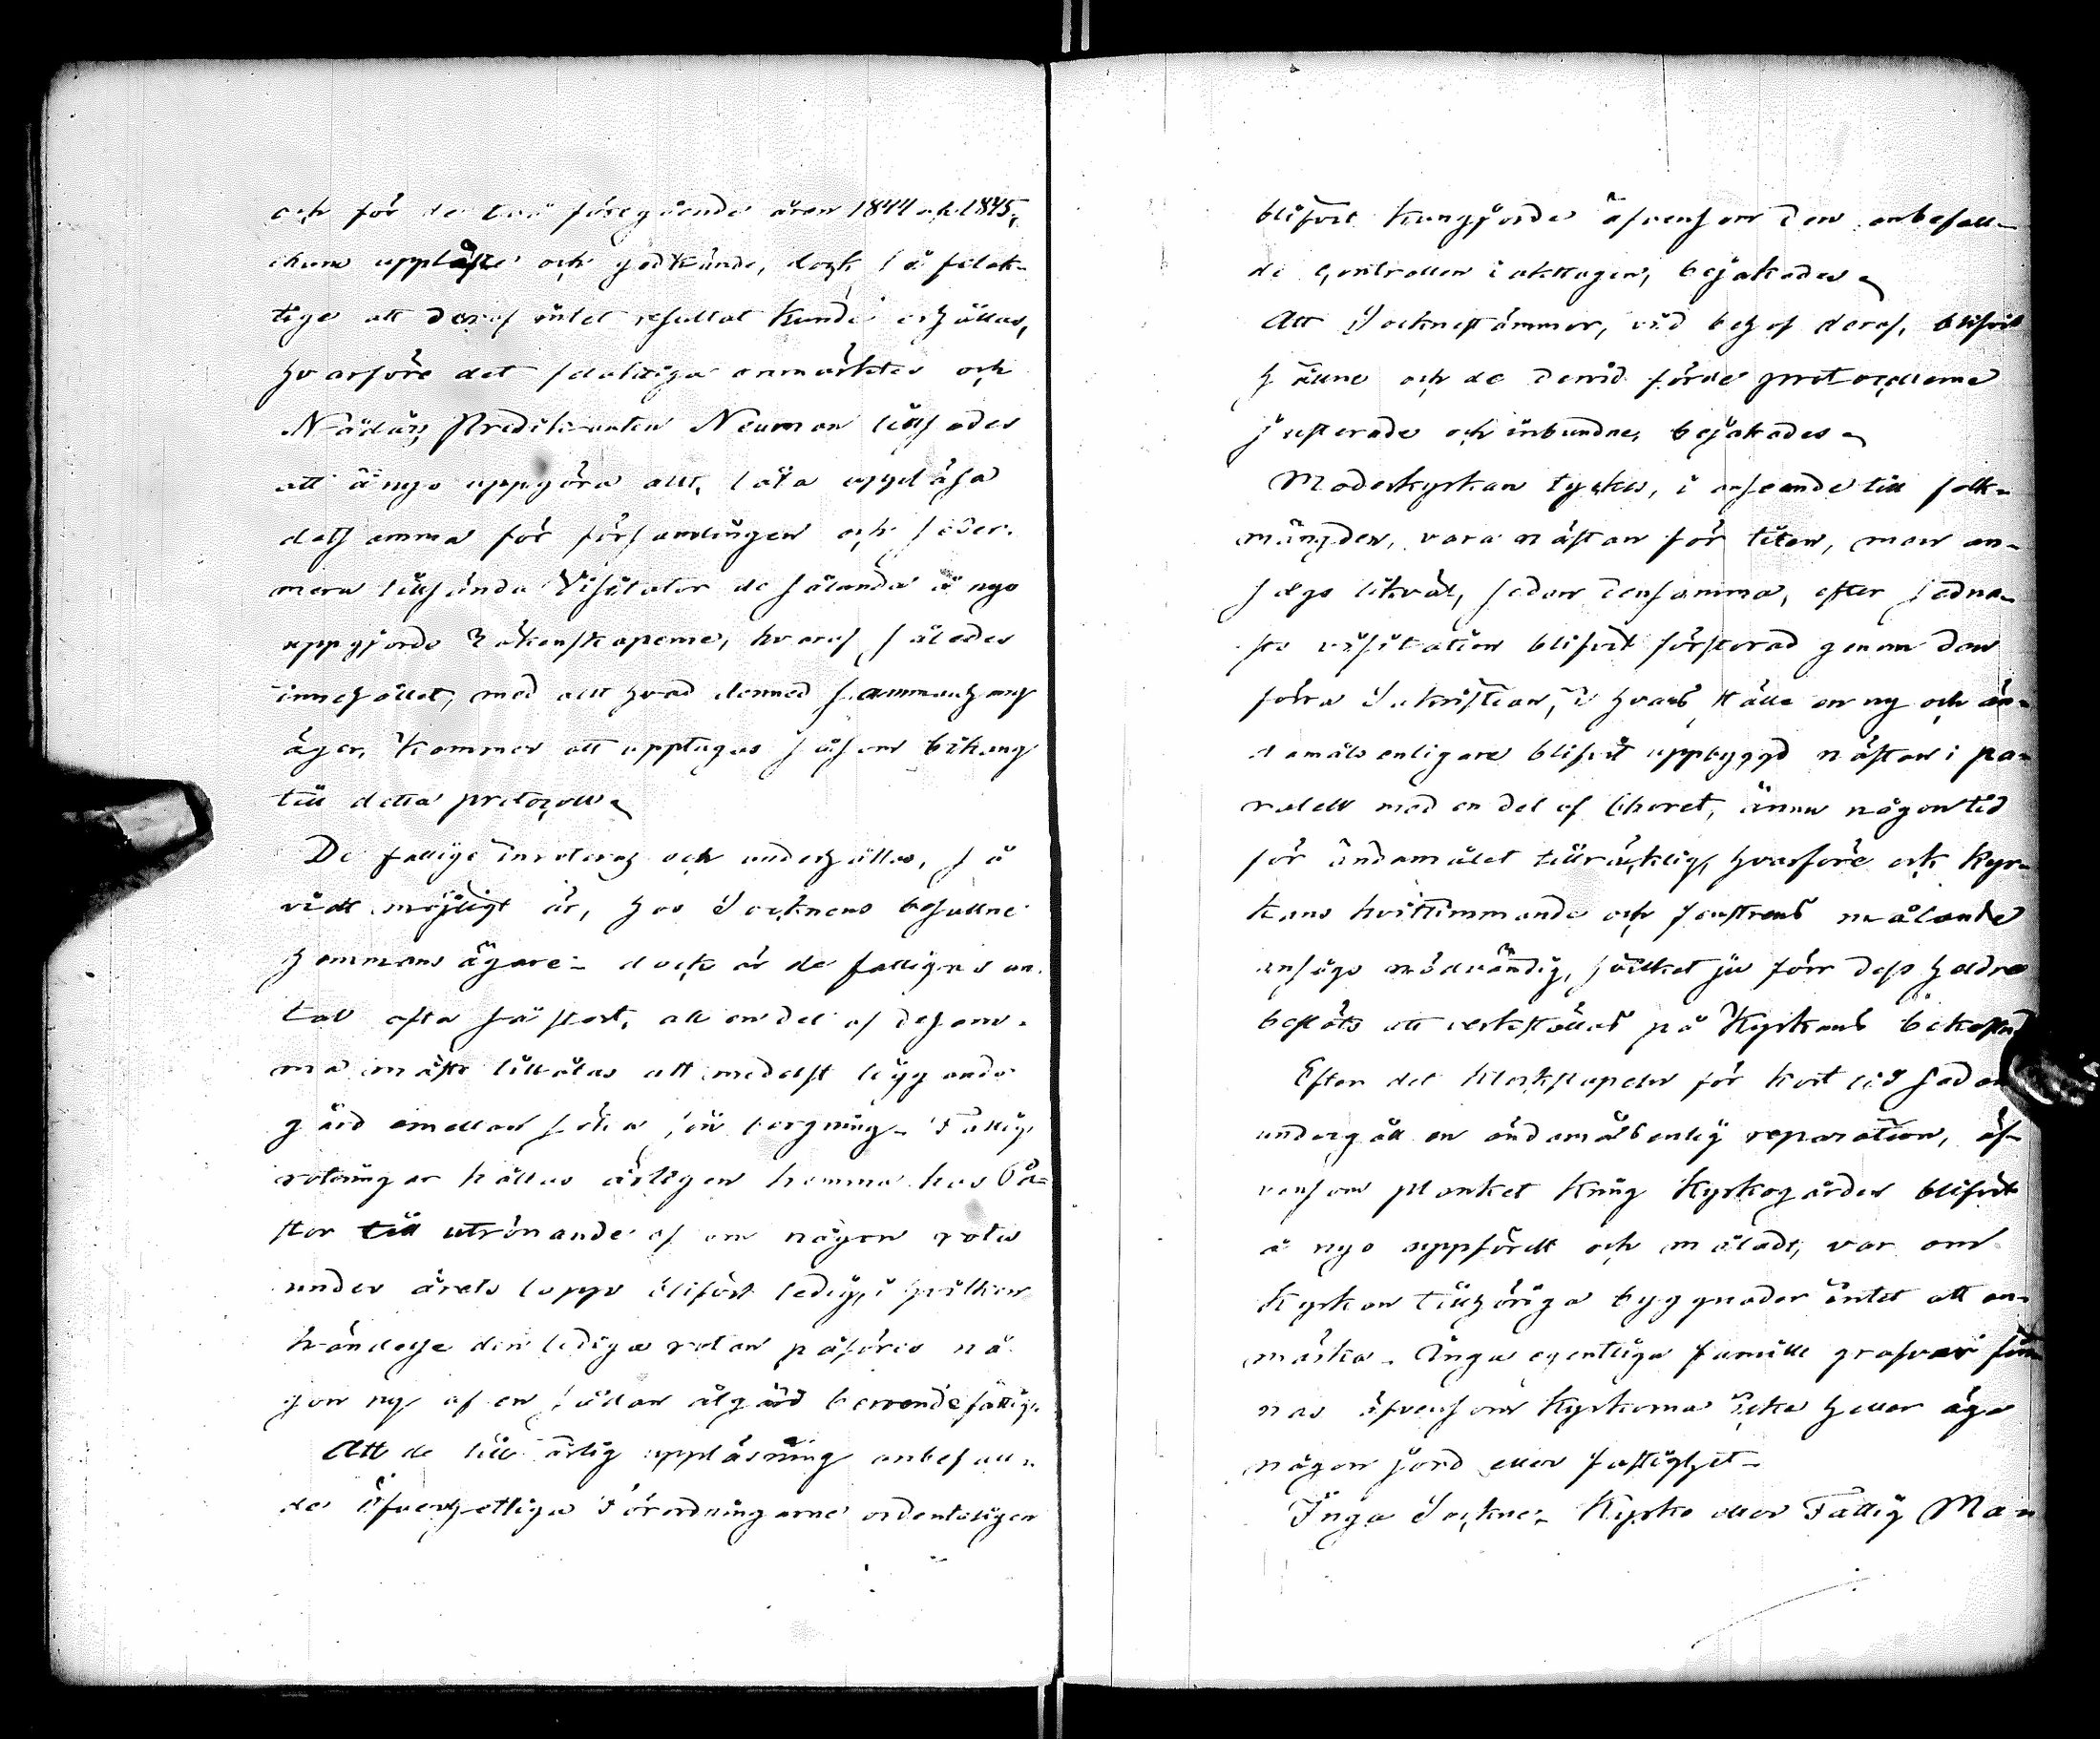 och för de två föregående åren 1844 och 1845,
ehuru uppläste och godkände, dock så felak-
tige att deraf intet resultat kunde erhållas,
hvarföre det felaktiga anmärktes och
Nådårs Predikanten Neuman tillsades
att ånyo uppgöra allt, låta uppläsa
detsamma för församlingen och seder-
mera tillsända Visitator de sålunda å nyo
uppgjorde Räkenskaperne, hvaraf således
innehållet, med allt hvad dermed sammanhang
äger, kommer att upptagas såsom bihang
till detta protocoll.
De fattige inroteras och underhållas, så
vidt möjligt är, hos Socknens besuttne
hemmans ägare - dock är de fattigas an-
tal ofta så stort, att en del af desam-
ma måste tillåtas att medelst liggande
gärd emellan söka sin bergning. Fattig-
roteringar hållas årligen hemma hos Pa-
stor till utrönande af om någon rota
under årets lopp blifvit ledig, i hvilken
händelse den ledige rotan påföres nå-
gon ny af en sådan åtgärd beroende fattig.
Att de till årlig uppläsning anbefall-
de Öfverhetliga Förordningarne ordenteligen
blifvit kungjorde äfvensom den anbefall-
de Controllen iakttagen, bejakades.
Att Sockneståmmor, vid behof deraf, blifvit
hållne och de dervid förde protocollerne
justerade och inbundne, bejakades.
Moderkyrkan tyckes, i anseende till folk-
mängden, vara nästan för liten, men an-
sågs likväl, sedan densamma, efter sedna-
ste visitation blifvit förstorad genom den
förra Sakristian, i hvars ställe en ny och än-
damåls enligare blifvit uppbyggd nästan i pa-
ralell med en del af Choret, ännu någon tid
för ändamålet tillräcklig, hvarföre ock Kyr-
kans hvittimmande och fenstrens målande
ansågs nödvändig, hvilket ju förr dess heldre
beslöts att verkställas på Kyrkans bekostnad
Efter det klockstapeln för kort tid sedan
undergått en ändamålsenlig reparation, äf-
vensom planket kring Kyrkogården blifvit
å nyo uppfördt och måladt, var om
Kyrkan tillhöriga byggnader intet att an-
märka. Inga egentliga familie grafvar fin-
nas äfvensom Kyrkorna icke heller äga
någon jord eller fastighet -
Inga Sockne- Kyrko eller Fattig Ma-